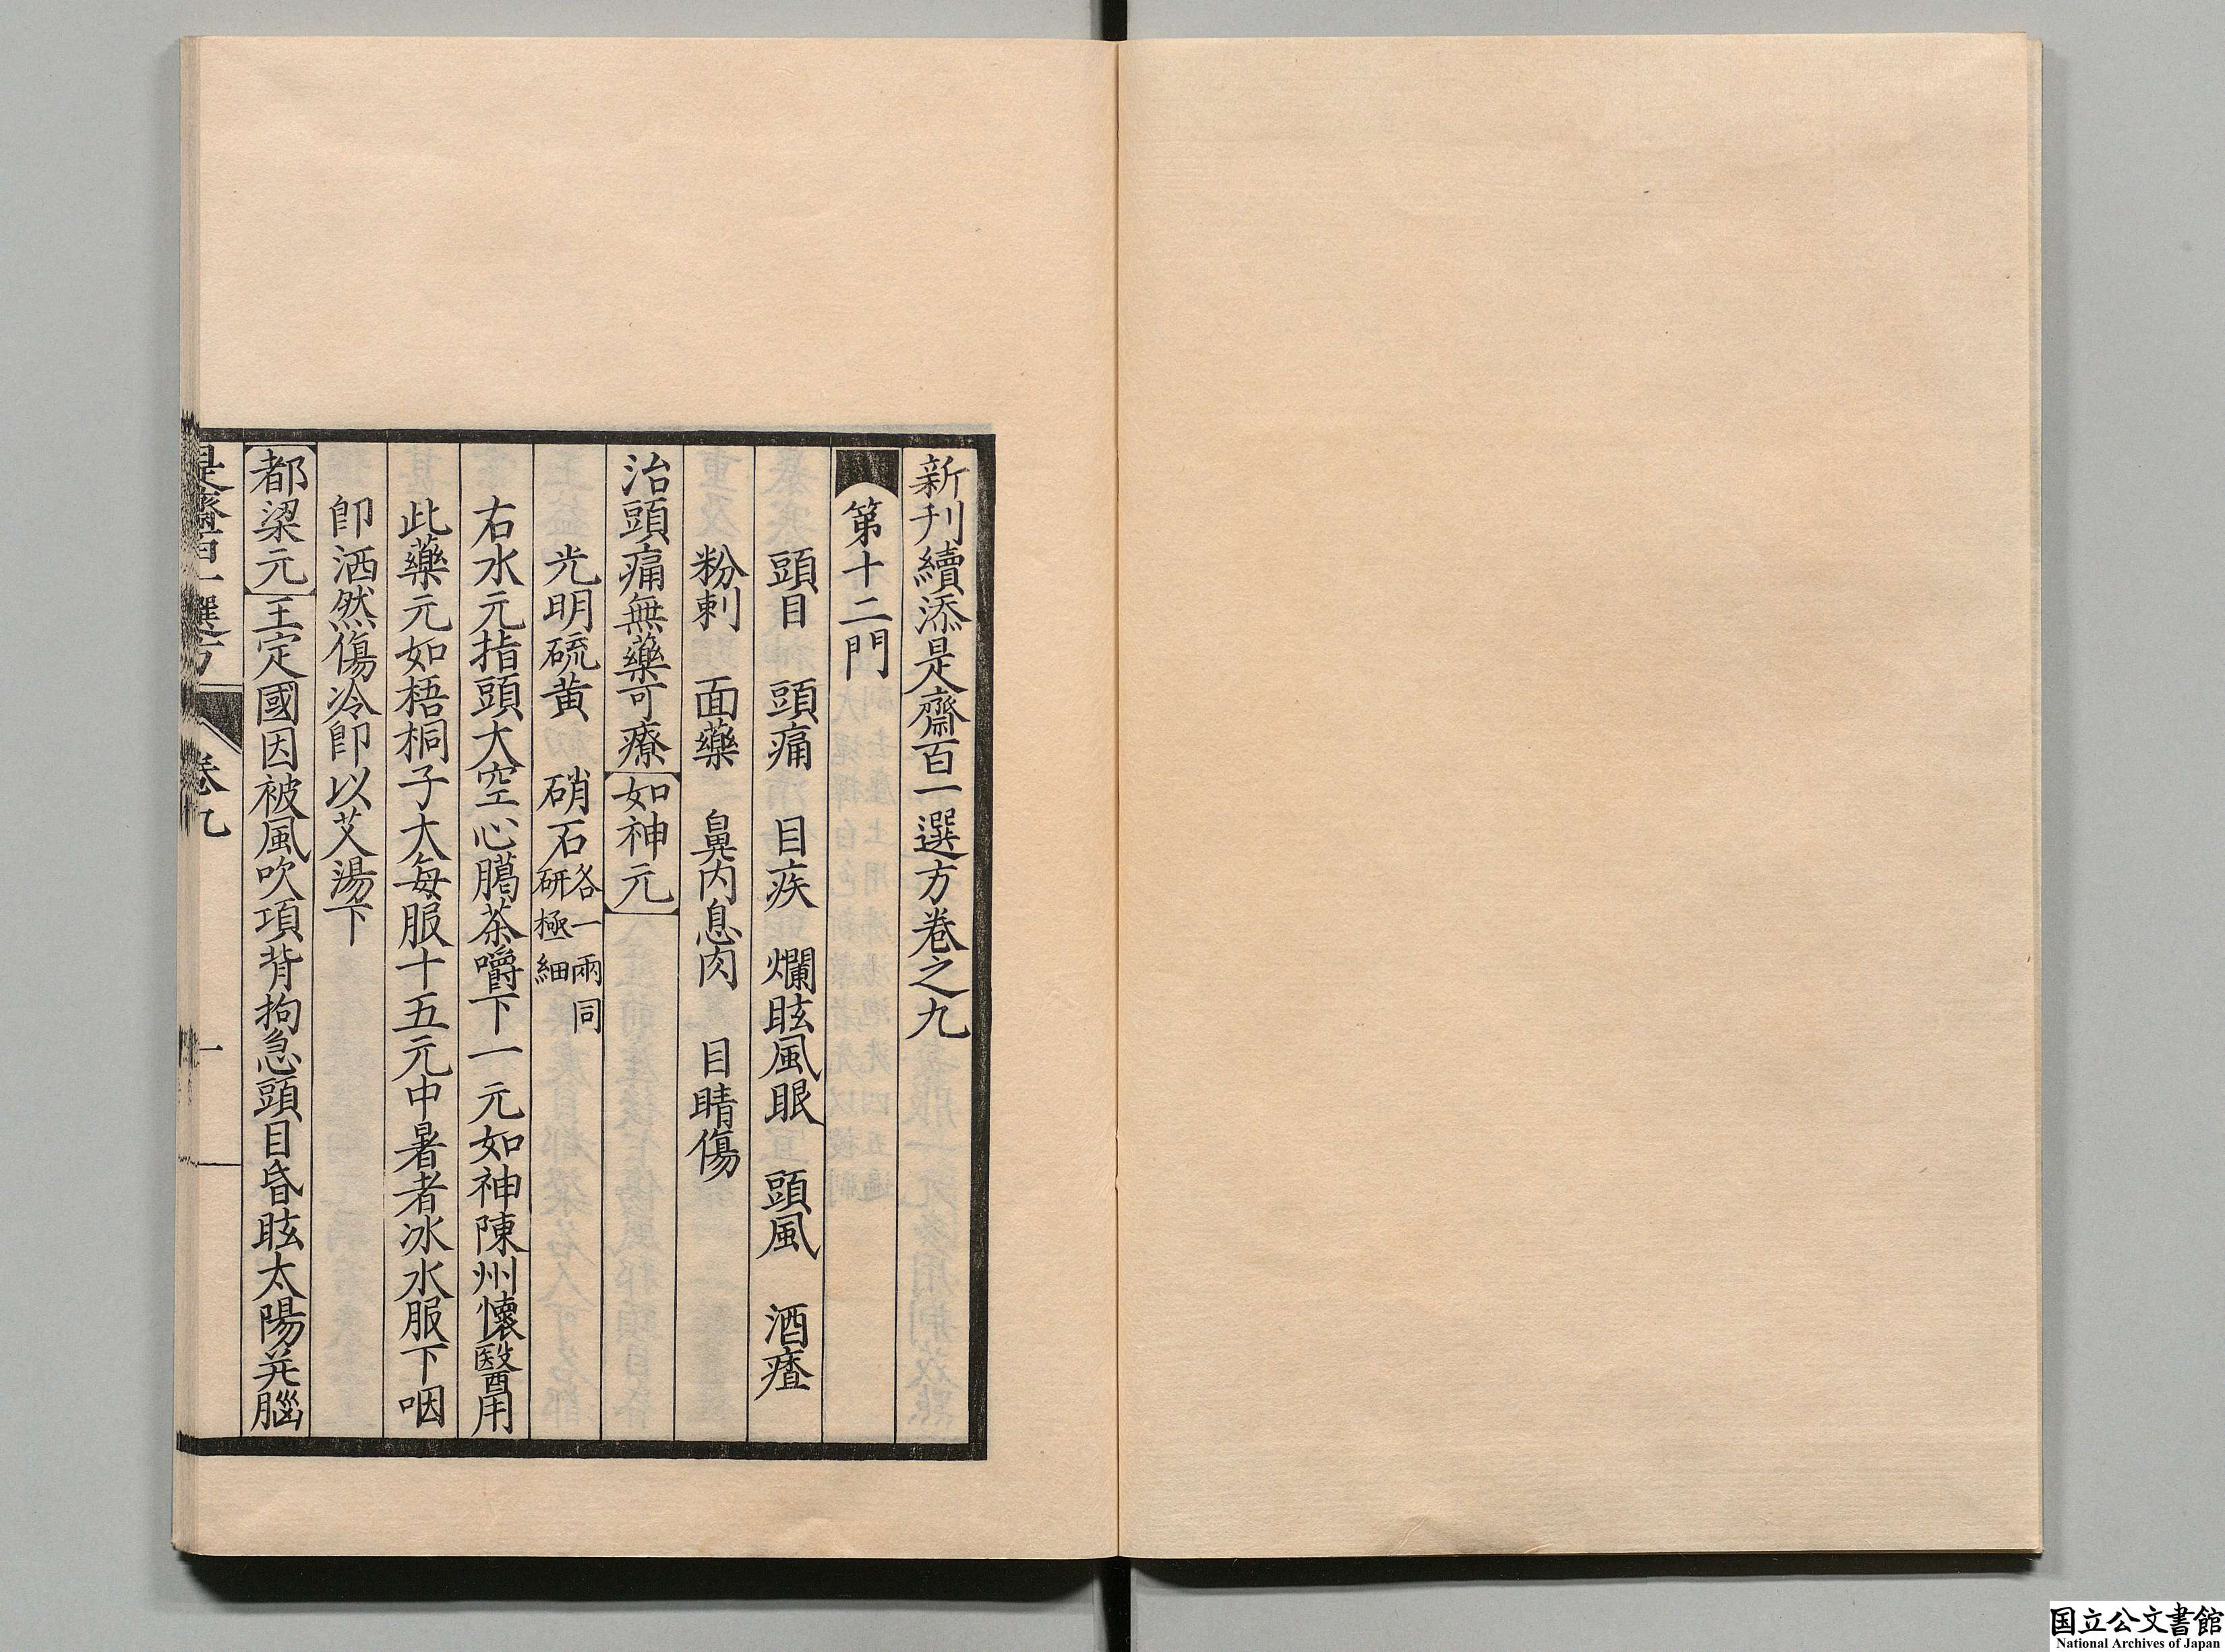 新刊續添是齋百一選方卷之九
第十二門
頭目　頭痛　目疾　爛眩風眼　頭風　酒㾴
粉刺　面藥　鼻内息肉　目睛傷
治頭痛無藥可療　如神元
光明硫黄　硝石各一兩同研極細
右水元指頭大空心臈茶嚼下一元如神陳州懷醫用
此藥元如梧桐子大每服十五元中暑者冰水服下咽
卽洒然傷冷卽以艾湯下
都梁元　王定國因被風吹項背拘急頭目昏眩太陽并腦
是齋百一選方　卷九　一
国立公文書館
National Archives of Japan